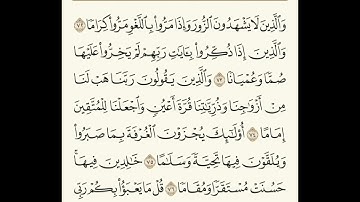 وَالَّذِينَ لَا يَشْهَدُونَ الزُّورَ وَإِذَا مَرُّوا بِاللَّغْوِ مَرُّوا كِرَامًا ٧٢
وَالَّذِينَ إِذَا ذُكِّرُوا بِآيَاتِ رَبِّهِمْ لَمْ يَخِرُّوا عَلَيْهَا
صُمًّا وَعُمْيَانًا ٧٣ وَالَّذِينَ يَقُولُونَ رَبَّنَا هَبْ لَنَا
مِنْ أَزْوَاجِنَا وَذُرِّيَّاتِنَا قُرَّةَ أَعْيُنٍ وَاجْعَلْنَا لِلْمُتَّقِينَ
إِمَامًا ٧٤ أُولَٰئِكَ يُجْزَوْنَ الْغُرْفَةَ بِمَا صَبَرُوا
وَيُلَقَّوْنَ فِيهَا تَحِيَّةً وَسَلَامًا ٧٥ خَالِدِينَ فِيهَا ۚ
حَسُنَتْ مُسْتَقَرًّا وَمُقَامًا ٧٦ قُلْ مَا يَعْبَأُ بِكُمْ رَبِّي